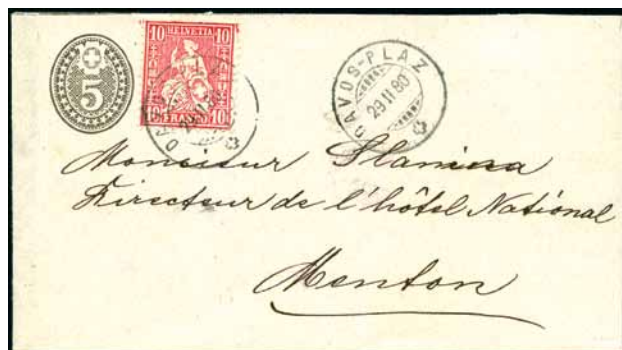 5
10 HELVETIA 10
FRANCO
DAVOS-PLAZ
29 II 80
DAVOS-PLAZ
29 II 80
Monsieur Slanina
Directeur de l'hôtel National
Menton